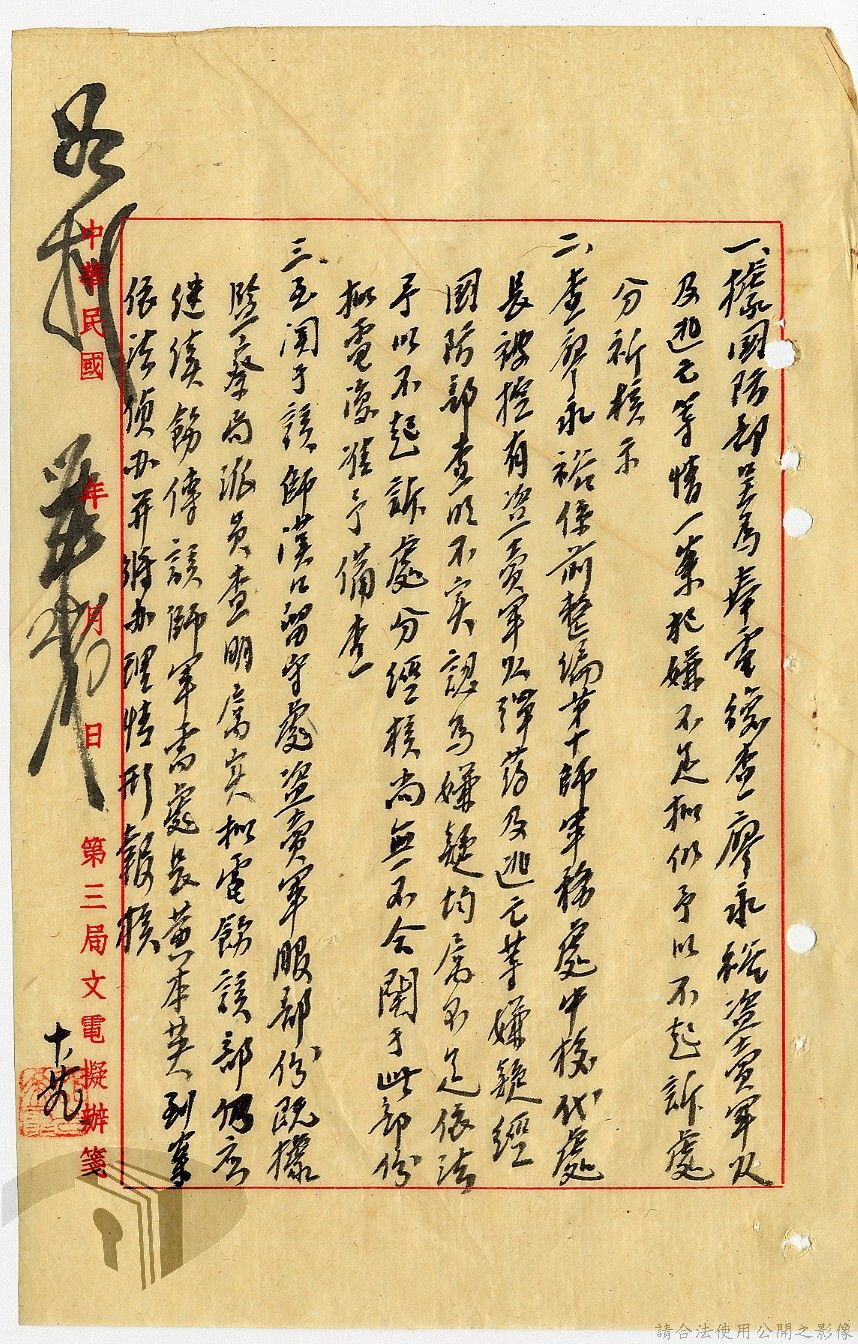 一、據國防部呈為奉電複查廖永裕盜賣軍火
及逃亡等情一案犯嫌不足擬仍予以不起訴處
分祈核示
二、查廖永裕係前整編第十師軍務處中校代處
長被控有盜賣軍火彈葯及逃亡等嫌疑經
國防部查明不实認為嫌疑均屬不足依法
予以不起訴處分經核尚無不合關于此部份
擬電復准予備查
三、至関于該師漢口留守處盜賣軍服部份既據
監察局派員查明屬实擬電飭該部仍应
继续飭傳該師軍需處長黄本英到案
依法偵办并將办理情形報核
中華民國 年 月 日 第三局文電擬辦箋
請合法使用公開之影像